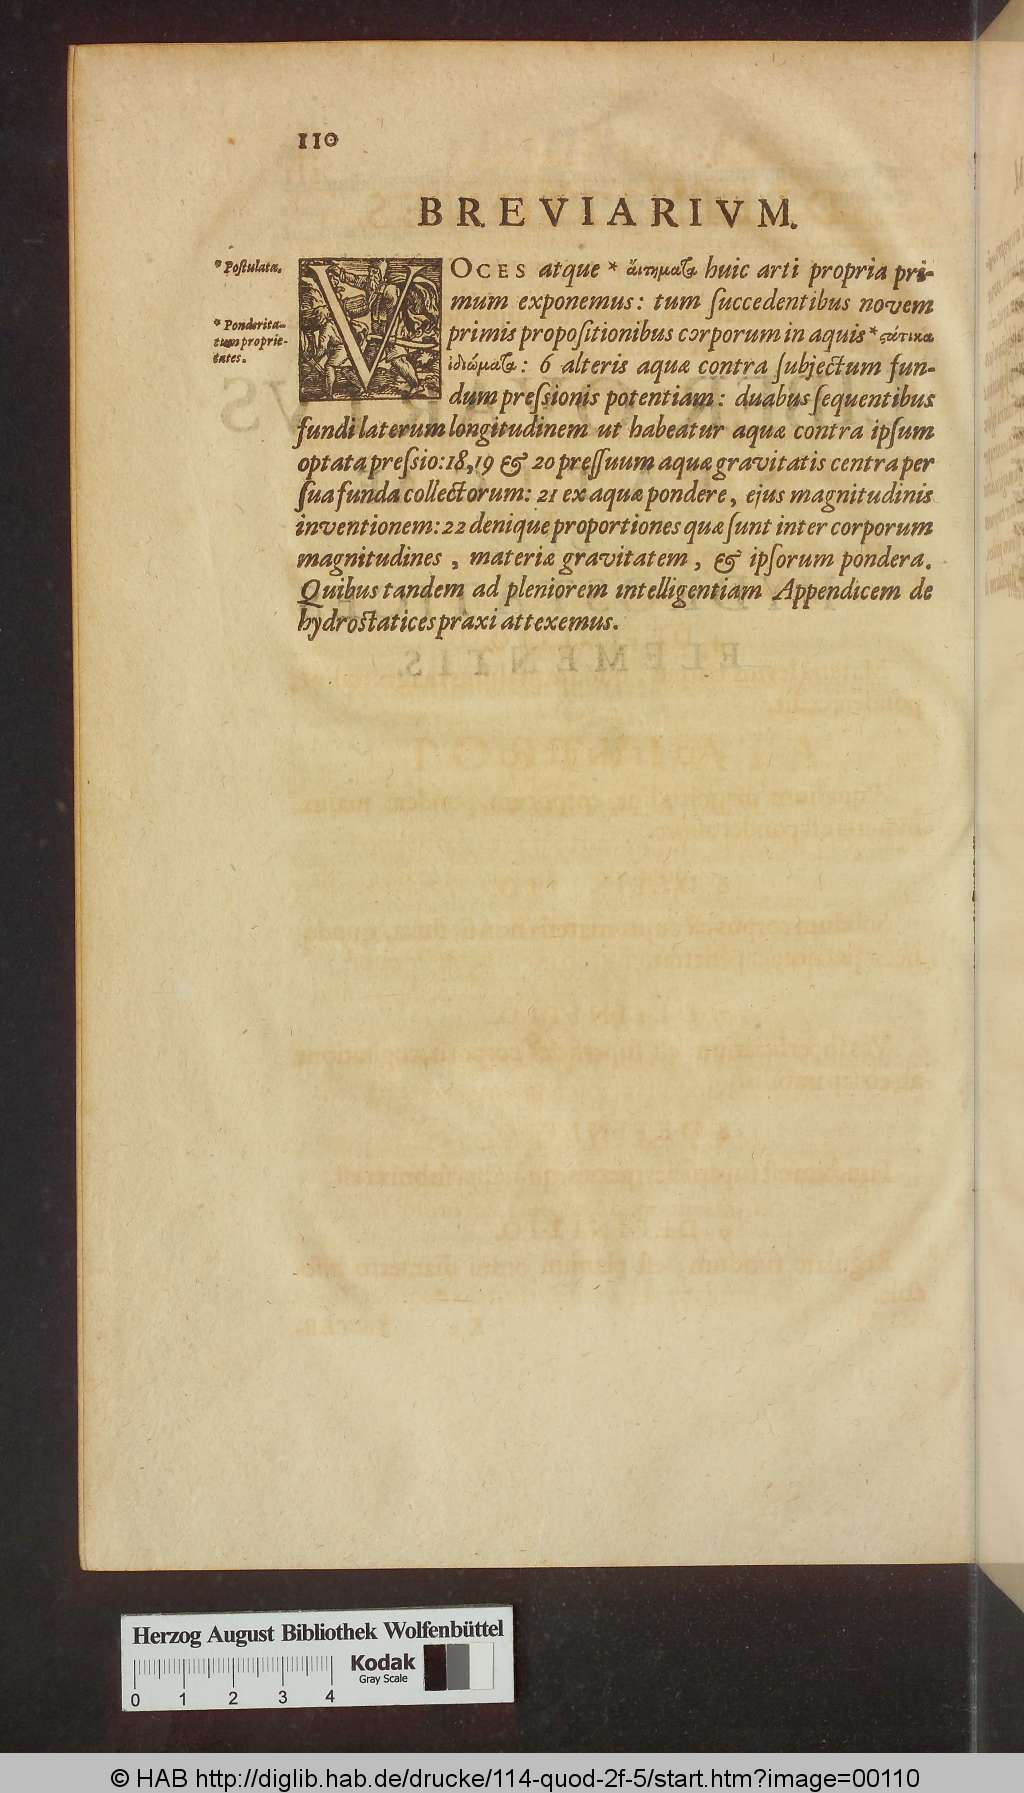 110
BREVIARIVM.
* Postulata.
* Ponderita-
tum proprie-
tates.
VOCES atque * ἄιτηματα huic arti propria pri-
mum exponemus: tum succedentibus novem
primis propositionibus corporum in aquis * ςάτικα
ἰδιώματα: 6 alteris aquæ contra subjectum fun-
dum pressionis potentiam: duabus sequentibus
fundi laterum longitudinem ut habeatur aquæ contra ipsum
optata pressio: 18, 19 & 20 pressuum aquæ gravitatis centra per
sua funda collectorum: 21 ex aquæ pondere, ejus magnitudinis
inventionem: 22 denique proportiones quæ sunt inter corporum
magnitudines, materiæ gravitatem, & ipsorum pondera.
Quibus tandem ad pleniorem intelligentiam Appendicem de
hydrostatices praxi attexemus.
Herzog August Bibliothek Wolfenbüttel
Kodak
Gray Scale
0 1 2 3 4
© HAB http://diglib.hab.de/drucke/114-quod-2f-5/start.htm?image=00110